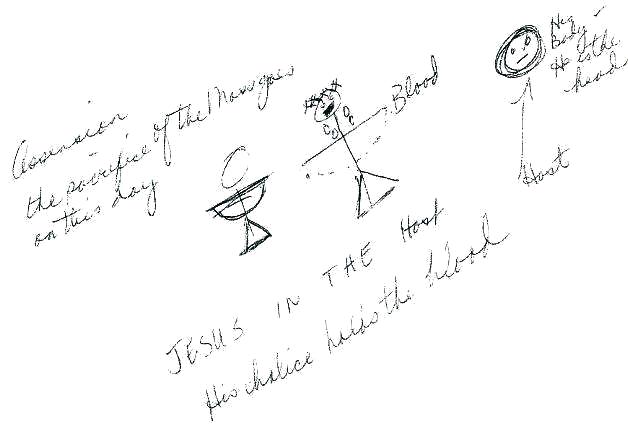 Ascension
the sacrifice of the Mass goes
on this day
Blood
His
Body -
He is the
head
Host
JESUS IN THE Host
His chalice holds the blood